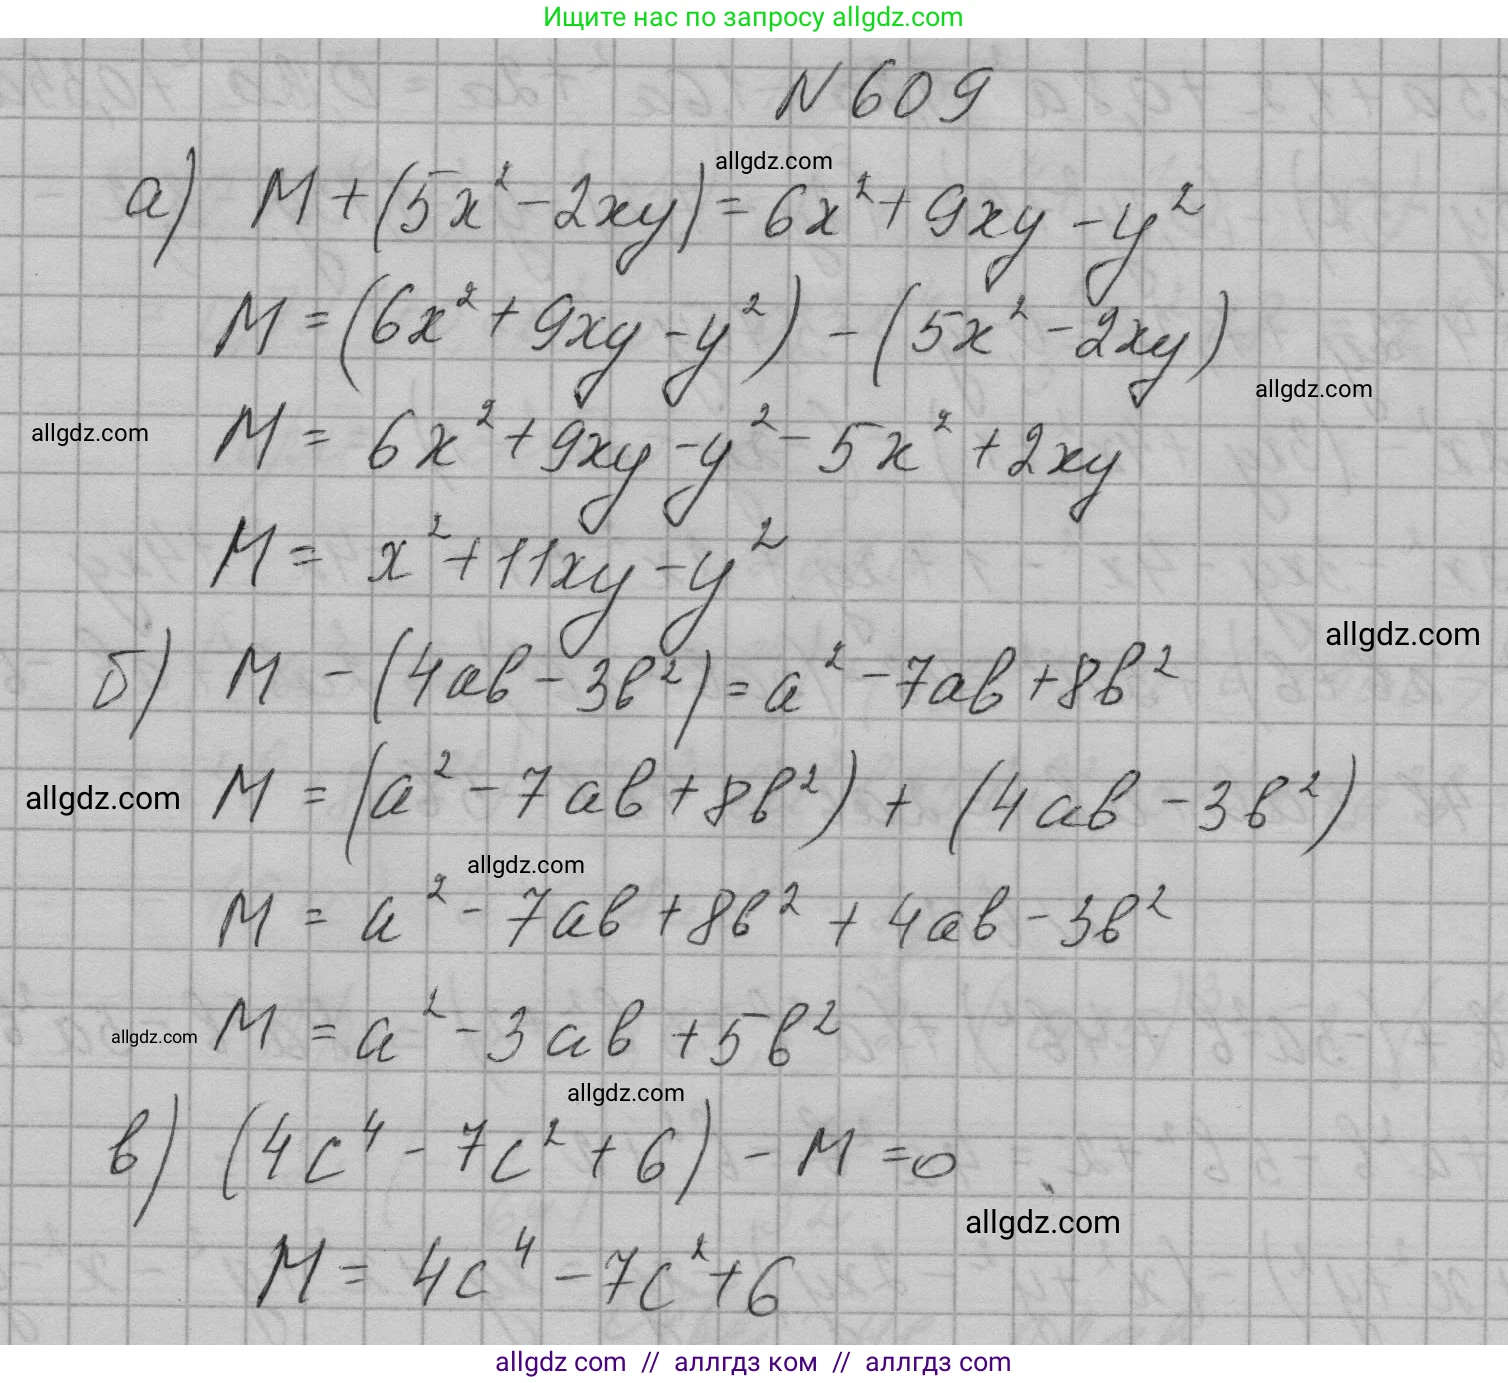 Ищите нас по запросу allgdz.com
N 609
allgdz.com
а) M + (5x² - 2xy) = 6x² + 9xy - y²
M = (6x² + 9xy - y²) - (5x² - 2xy)
allgdz.com
allgdz.com
M = 6x² + 9xy - y² - 5x² + 2xy
M = x² + 11xy - y²
allgdz.com
б) M - (4ab - 3b²) = a² - 7ab + 8b²
allgdz.com
M = (a² - 7ab + 8b²) + (4ab - 3b²)
allgdz.com
M = a² - 7ab + 8b² + 4ab - 3b²
allgdz.com
M = a² - 3ab + 5b²
allgdz.com
в) (4c⁴ - 7c² + 6) - M = 0
allgdz.com
M = 4c⁴ - 7c² + 6
allgdz com // аллгдз ком // аллгдз com